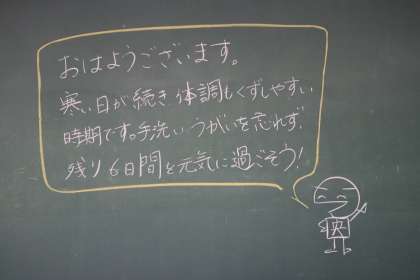 おはようございます。
寒い日が続き体調もくずしやすい
時期です。手洗いうがいを忘れず
残り6日間を元気に過ごそう！
央